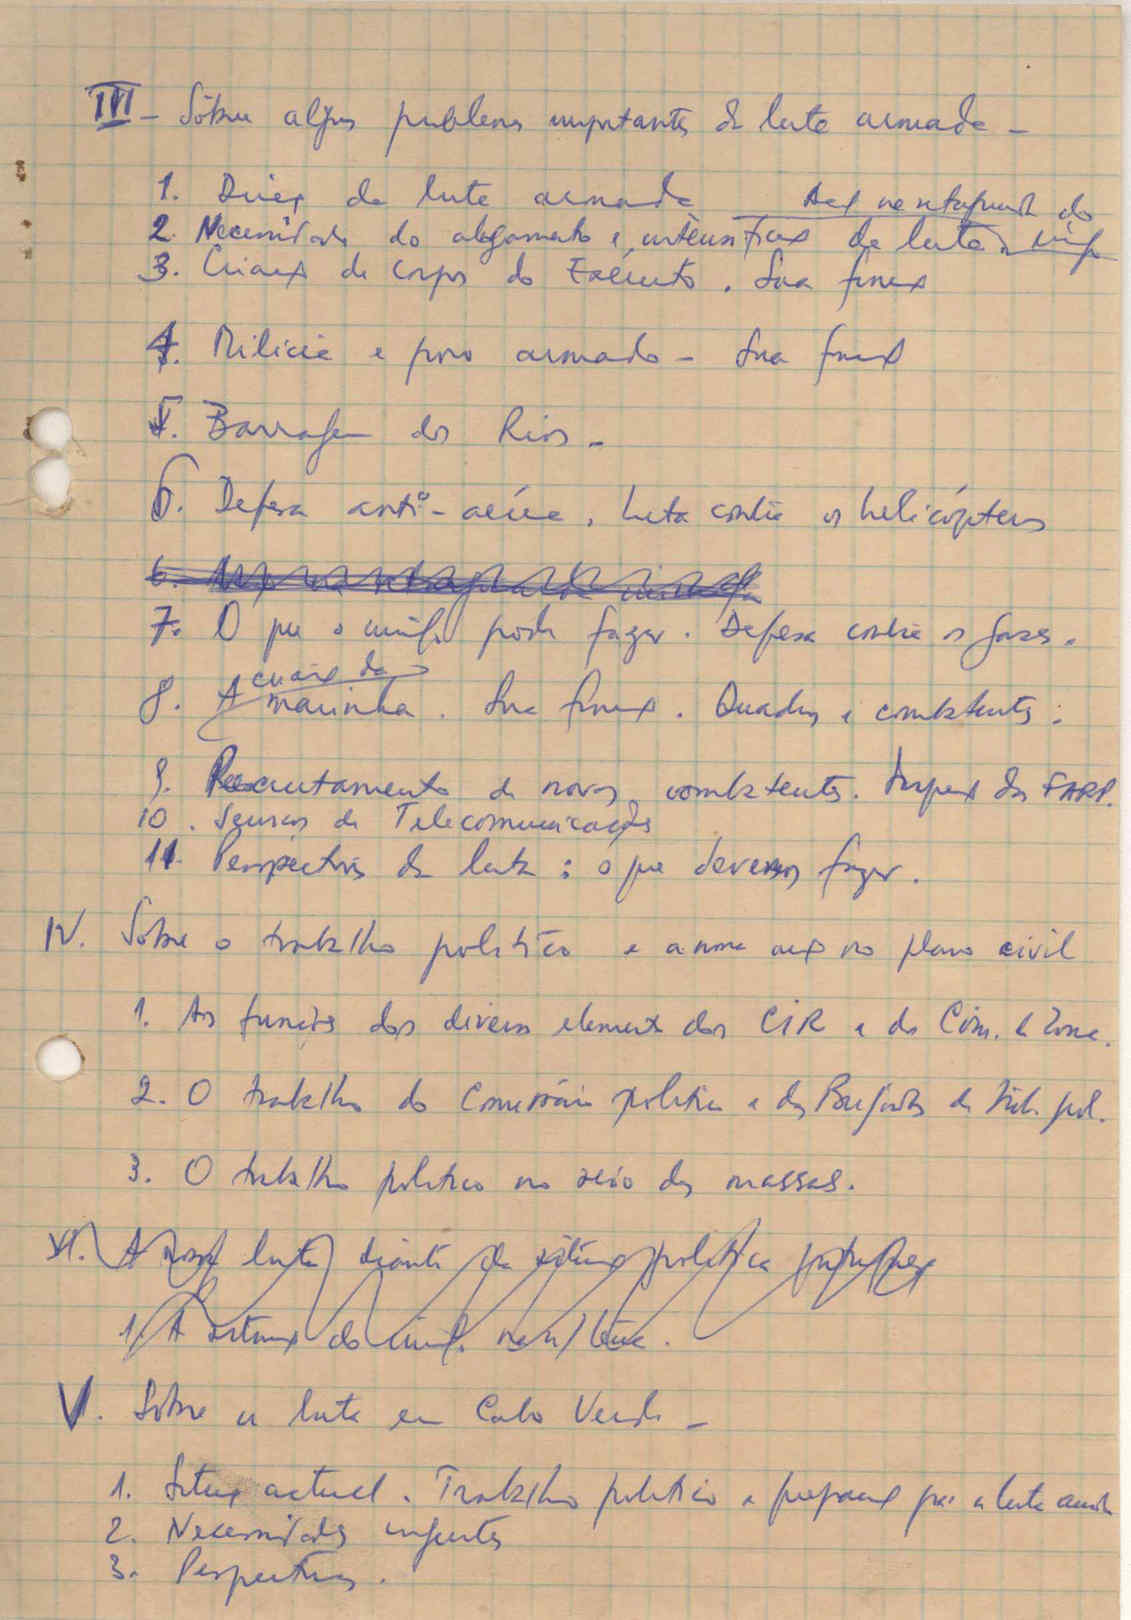 III - Sôbre alguns problemas importantes da luta armada -
1. Direx da luta armada Aex na retaguarda do
2. Necessidade do alargamento e intensificax da luta inimigo
3. Criax de corpos do Exército. Sua funx
4. Milicia e povo armado - Sua funx
5. Barragem dos Rios -
6. Defesa anti-aérea. Luta contra os helicópteros
7. O que o inimigo pode fazer. Defesa contra os gases.
criax da
8. A marinha. Sua funx. Quadros e combatentes.
9. Recrutamento de novos combatentes. das FARP.
10. Serviços de Telecomunicações
11. Perspectivas da luta: o que devemos fazer.
IV. Sôbre o trabalho politico e a nossa acx no plano civil
1. As funções dos diversos elementos dos CIR e do Com. de Zona.
2. O trabalho do Comissário politico e das Brigadas de Trab. pol.
3. O trabalho politico no seio das massas.
VI. A nossa luta diante da situax politica portuguesa
1. A situax do inimigo na n/ terra.
V. Sôbre a luta em Cabo Verde -
1. Situx actual. Trabalho politico e preparax para a luta armada
2. Necessidades urgentes
3. Perspectivas.